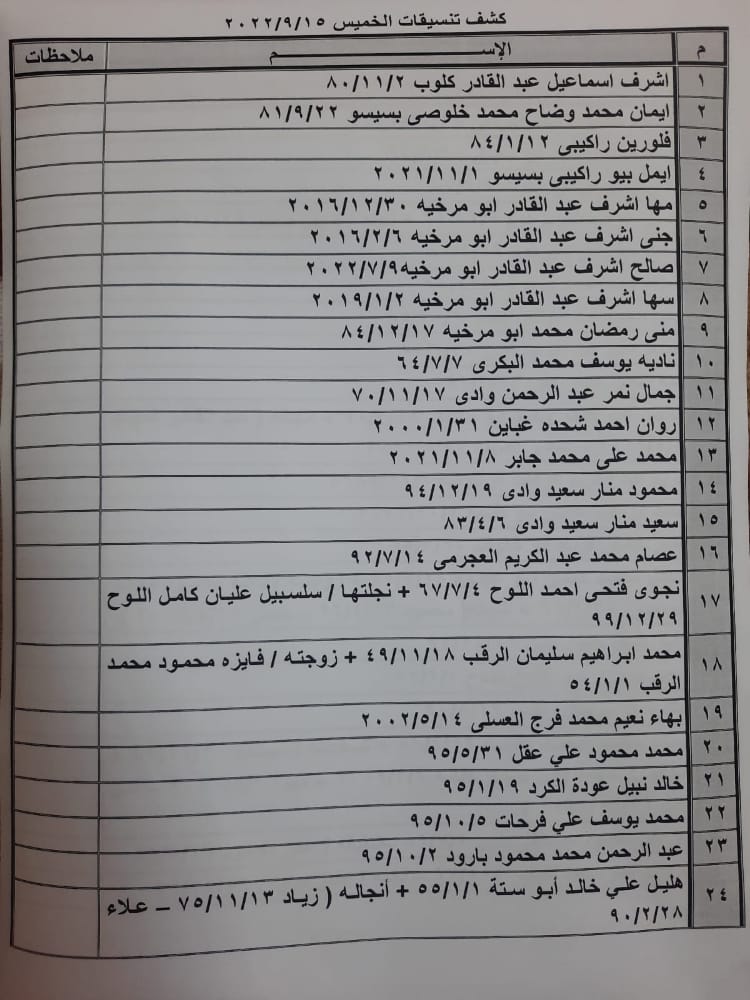 كشف تنسيقات الخميس ٢٠٢٢/٩/١٥
م الإســـــــم ملاحظات
١ اشرف اسماعيل عبد القادر كلوب ٨٠/١١/٢
٢ ايمان محمد وضاح محمد خلوصى بسيسو ٨١/٩/٢٢
٣ فلورين راكيبى ٨٤/١/١٢
٤ ايمل بيو راكيبى بسيسو ٢٠٢١/١١/١
٥ مها اشرف عبد القادر ابو مرخيه ٢٠١٦/١٢/٣٠
٦ جنى اشرف عبد القادر ابو مرخيه ٢٠١٦/٢/٦
٧ صالح اشرف عبد القادر ابو مرخيه٢٠٢٢/٧/٩
٨ سها اشرف عبد القادر ابو مرخيه ٢٠١٩/١/٢
٩ منى رمضان محمد ابو مرخيه ٨٤/١٢/١٧
١٠ ناديه يوسف محمد البكرى ٦٤/٧/٧
١١ جمال نمر عبد الرحمن وادى ٧٠/١١/١٧
١٢ روان احمد شحده غباين ٢٠٠٠/١/٣١
١٣ محمد على محمد جابر ٢٠٢١/١١/٨
١٤ محمود منار سعيد وادى ٩٤/١٢/١٩
١٥ سعيد منار سعيد وادى ٨٣/٤/٦
١٦ عصام محمد عبد الكريم العجرمى ٩٢/٧/١٤
١٧ نجوى فتحى احمد اللوح ٦٧/٧/٤ + نجلتها / سلسبيل عليان كامل اللوح
٩٩/١٢/٢٩
١٨ محمد ابراهيم سليمان الرقب ٤٩/١١/١٨ + زوجته / فايزه محمود محمد
الرقب ٥٤/١/١
١٩ بهاء نعيم محمد فرج العسلى ٢٠٠٢/٥/١٤
٢٠ محمد محمود علي عقل ٩٥/٥/٣١
٢١ خالد نبيل عودة الكرد ٩٥/١/١٩
٢٢ محمد يوسف علي فرحات ٩٥/١٠/٥
٢٣ عبد الرحمن محمد محمود بارود ٩٥/١٠/٢
٢٤ هليل علي خالد أبو ستة ٥٥/١/١ + أنجاله ( زياد ٧٥/١١/١٣ – علاء
٩٠/٢/٢٨